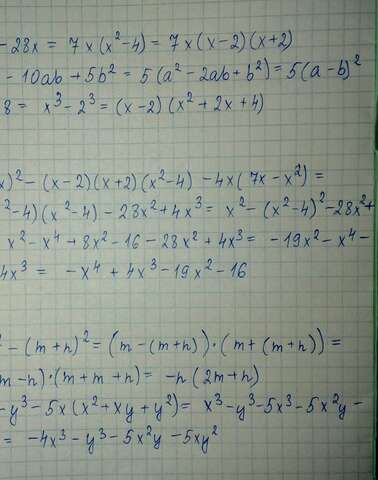 - 28x = 7x(x²-4) = 7x(x-2)(x+2)
- 10ab + 5b² = 5(a² - 2ab + b²) = 5(a-b)²
8 = x³ - 2³ = (x-2)(x² + 2x + 4)
x)² - (x-2)(x+2)(x²-4) - 4x(7x - x²) =
²-4)(x²-4) - 28x² + 4x³ = x² - (x²-4)² - 28x² +
x² - x⁴ + 8x² - 16 - 28x² + 4x³ = -19x² - x⁴ -
4x³ = -x⁴ + 4x³ - 19x² - 16
² - (m+n)² = (m - (m+n))·(m + (m+n)) =
m - n)·(m + m + n) = -n(2m+n)
- y³ - 5x(x² + xy + y²) = x³ - y³ - 5x³ - 5x²y -
= -4x³ - y³ - 5x²y - 5xy²